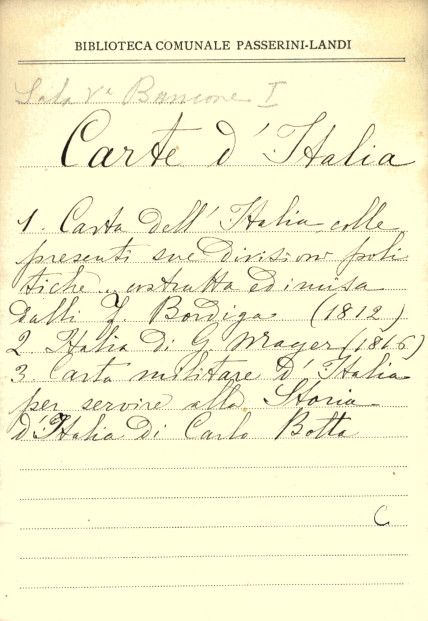 BIBLIOTECA COMUNALE PASSERINI-LANDI
Sala Vª Bancone I
Carte d'Italia
1. Carta dell'Italia colle
presenti sue divisioni poli
tiche costrutta ed incisa
dalli F. Bordiga (1812)
2 Italia di G Mayer (1816)
3 Carta militare d'Italia
per servire alla Storia
d'Italia di Carlo Botta
C